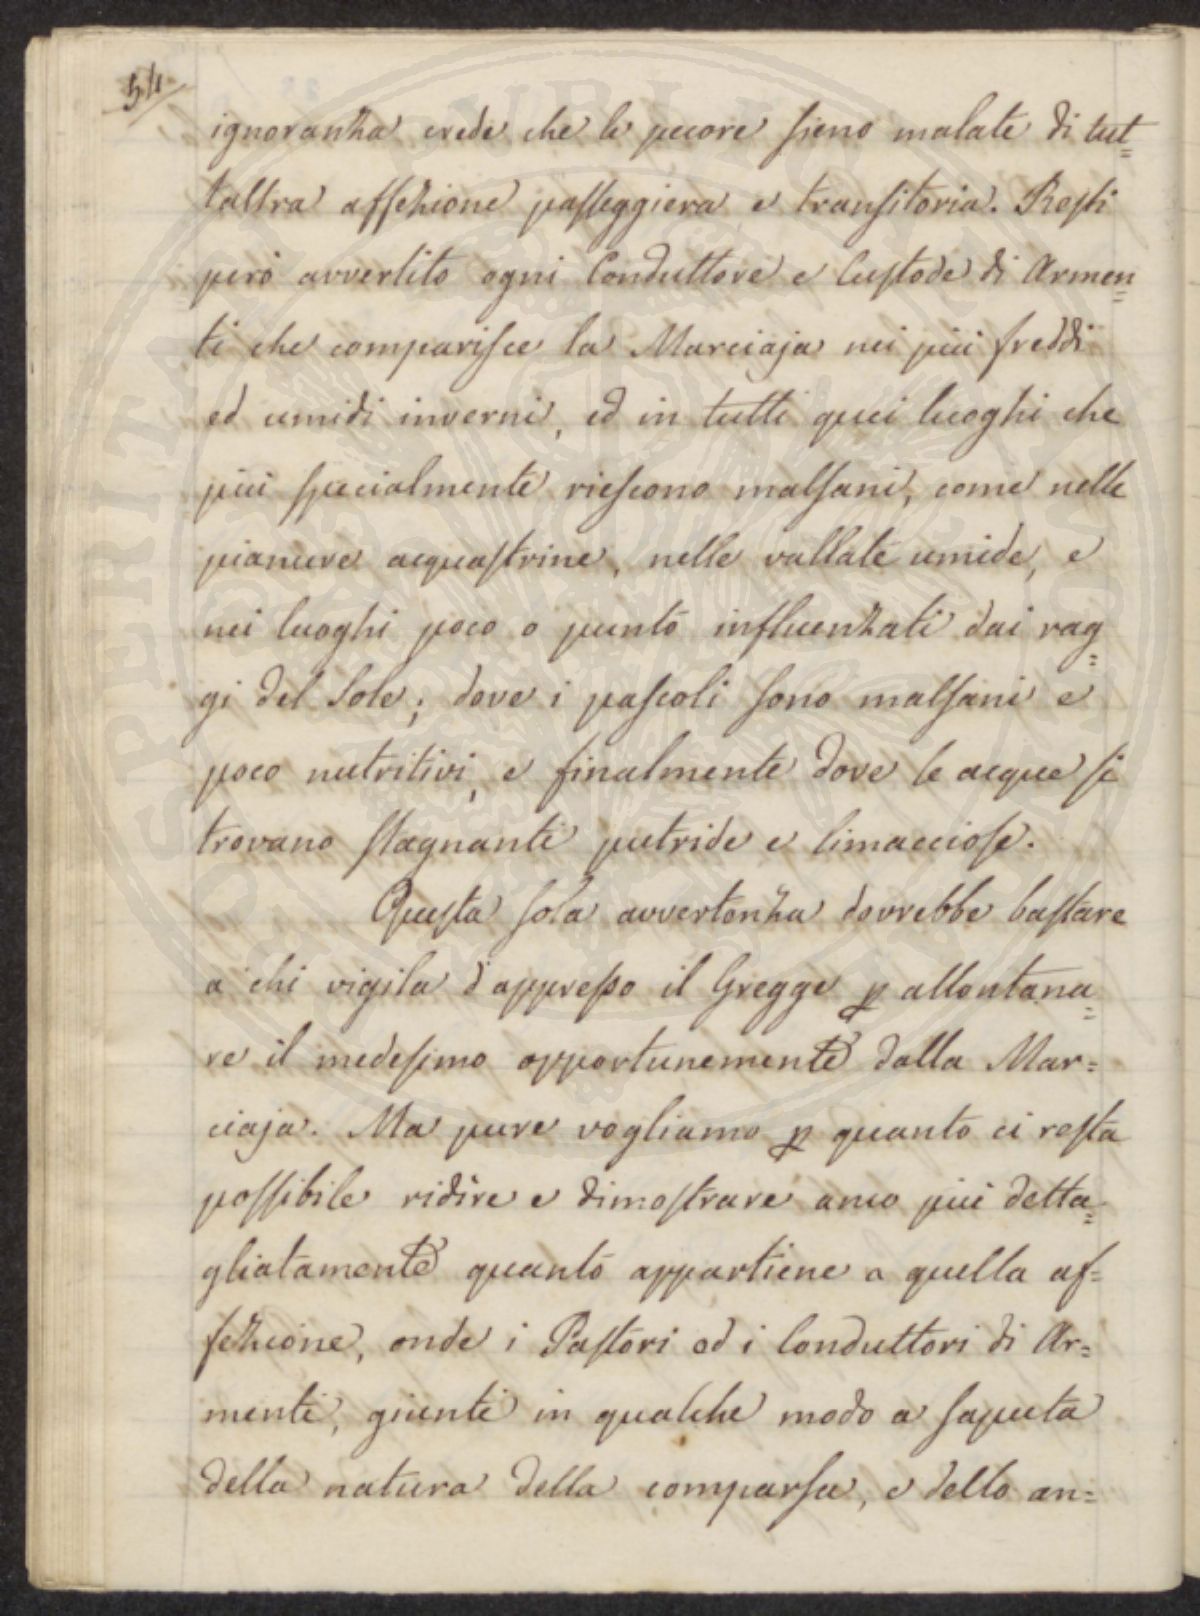 54
ignoranza crede che le pecore sieno malate di tut=
t'altra affezione passeggiera e transitoria. Resti
però avvertito ogni Conduttore e Custode di Armen=
ti che comparisce la Marciaja nei più freddi
ed umidi inverni, ed in tutti quei luoghi che
più specialmente riescono malsani, come nelle
pianure acquastrine, nelle vallate umide, e
nei luoghi poco o punto influenzati dai rag=
gi del Sole; dove i pascoli sono malsani e
poco nutritivi, e finalmente dove le acque si
trovano stagnanti putride e limacciose.
Questa sola avvertenza dovrebbe bastare
a chi vigila d'appresso il Gregge p allontana=
re il medesimo opportunemente dalla Mar=
ciaja. Ma pure vogliamo p quanto ci resta
possibile ridire e dimostrare anco più detta=
gliatamente quanto appartiene a quella af=
fezione, onde i Pastori ed i Conduttori di Ar=
menti, giunti in qualche modo a saputa
della natura della comparsa, e dello an=